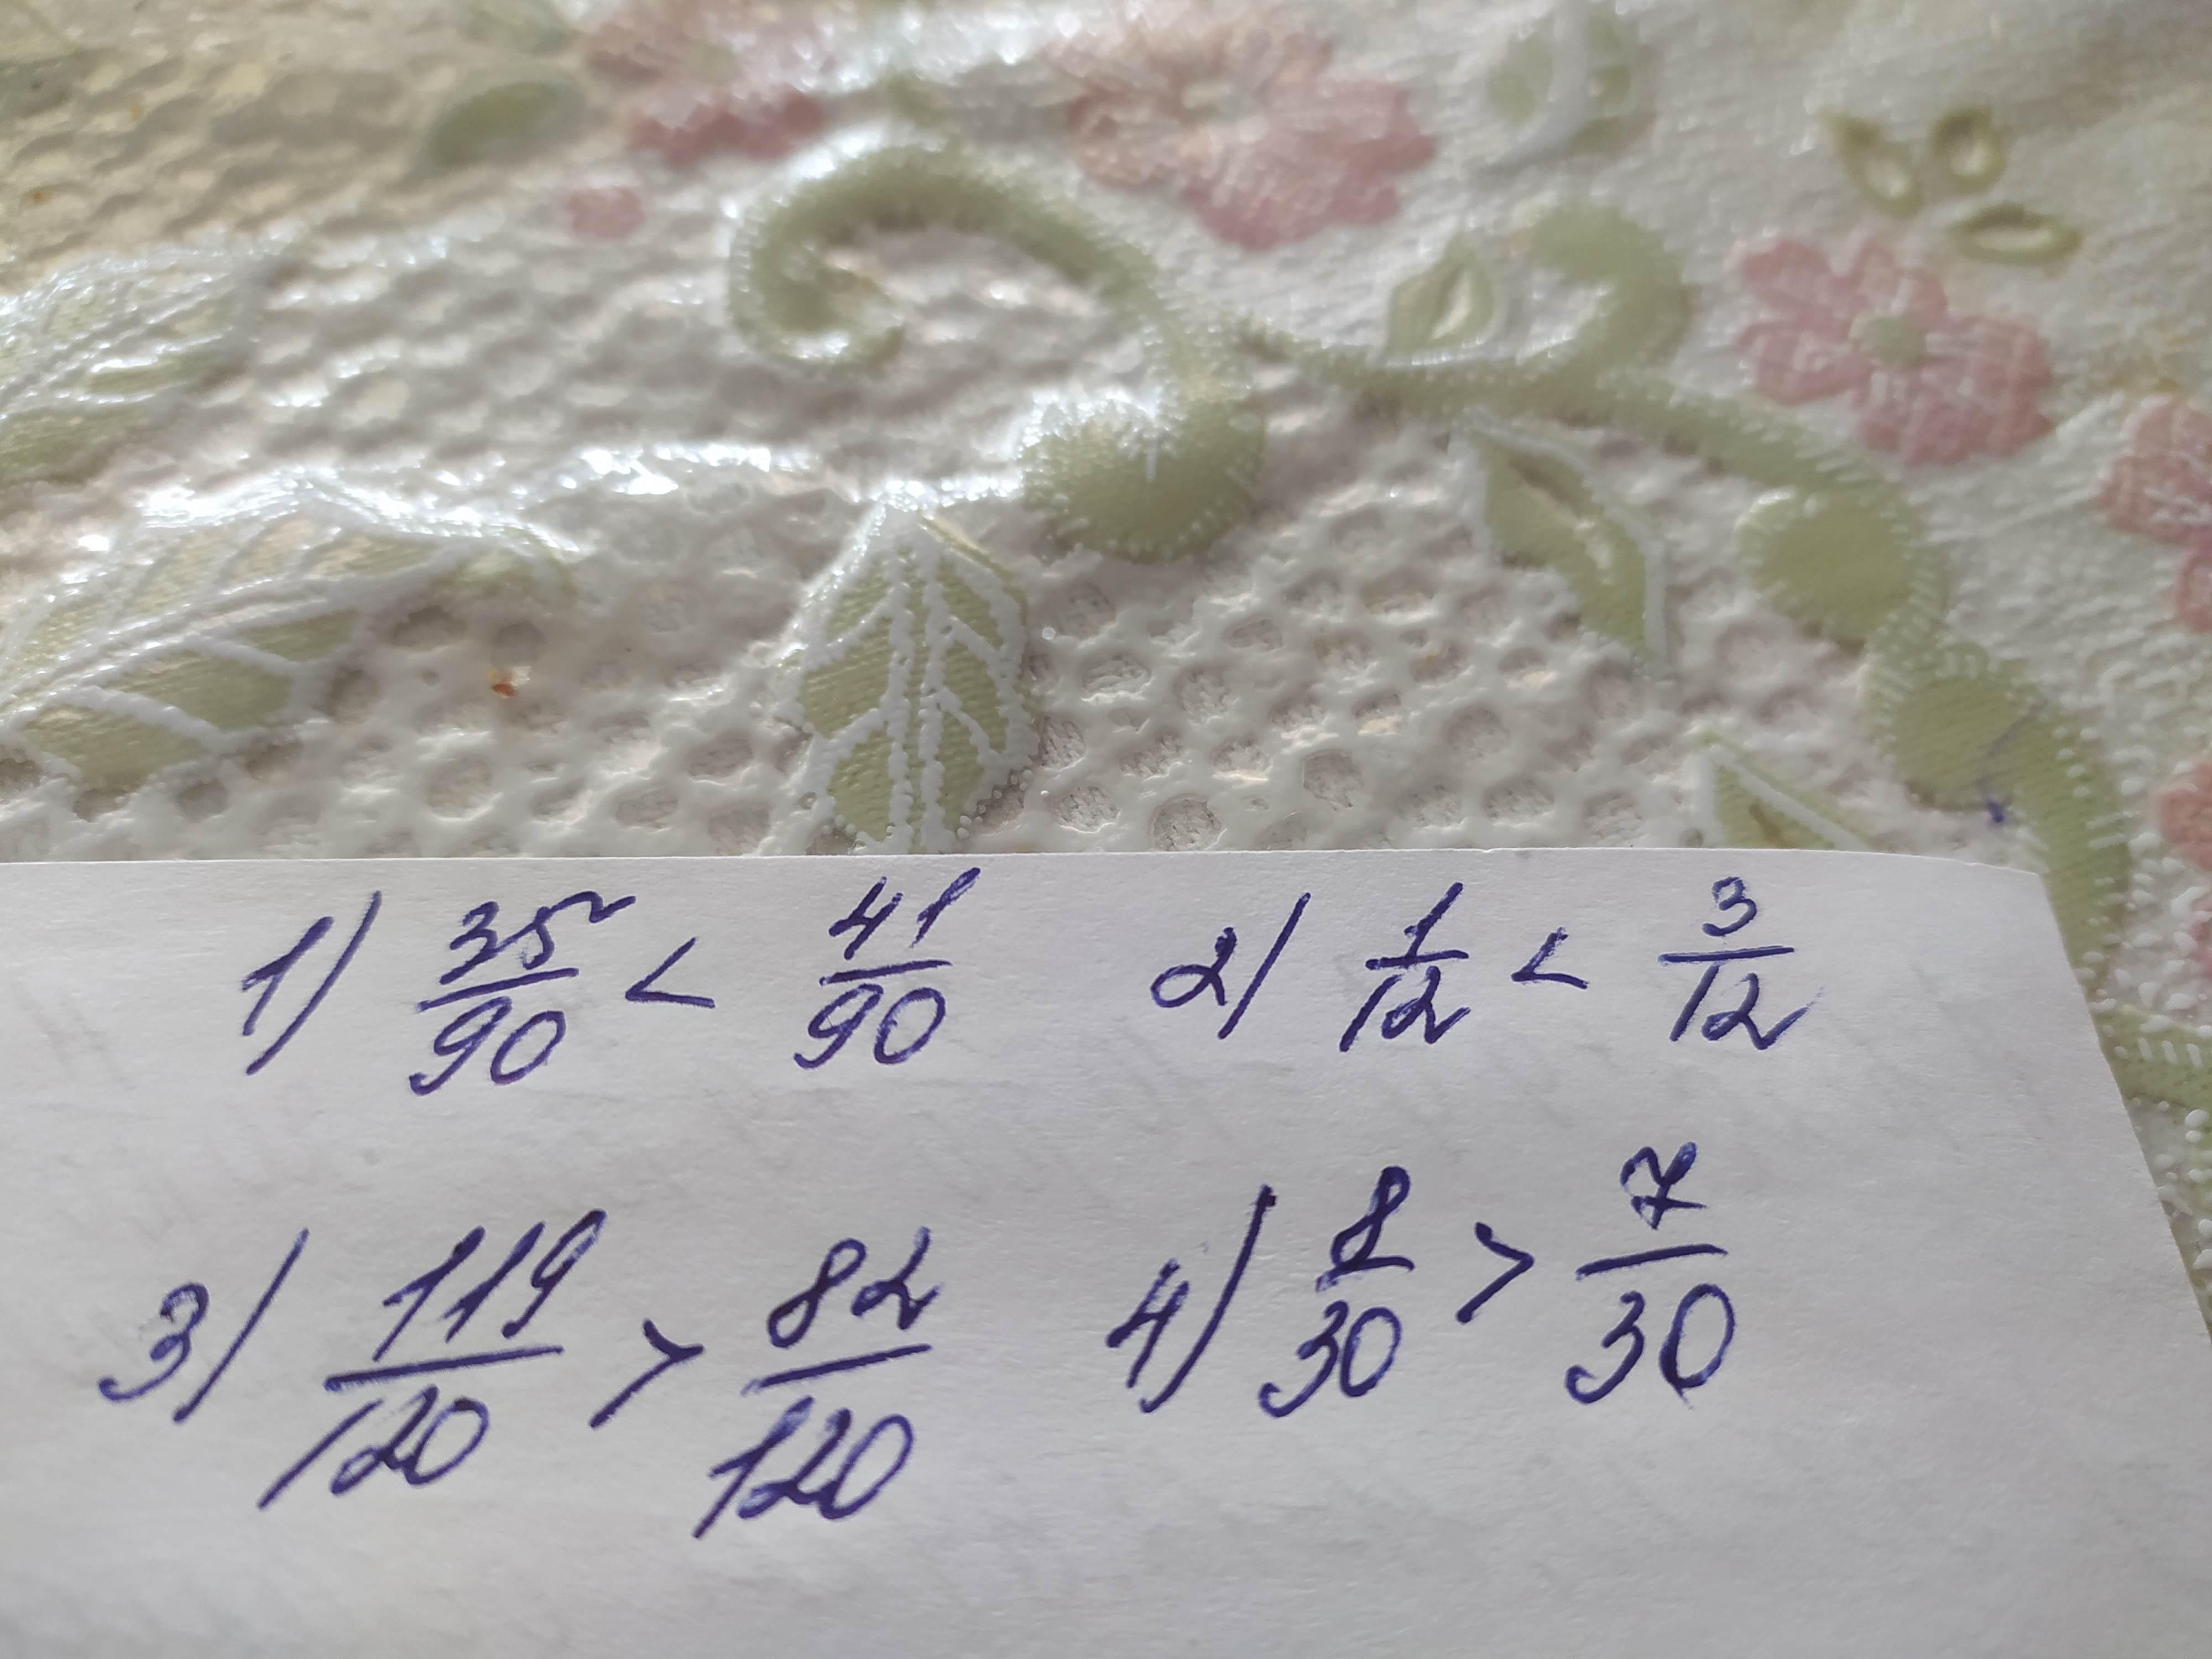 1) 35/90 < 41/90 2) 1/12 < 3/12
3) 119/120 > 82/120 4) 8/30 > 7/30